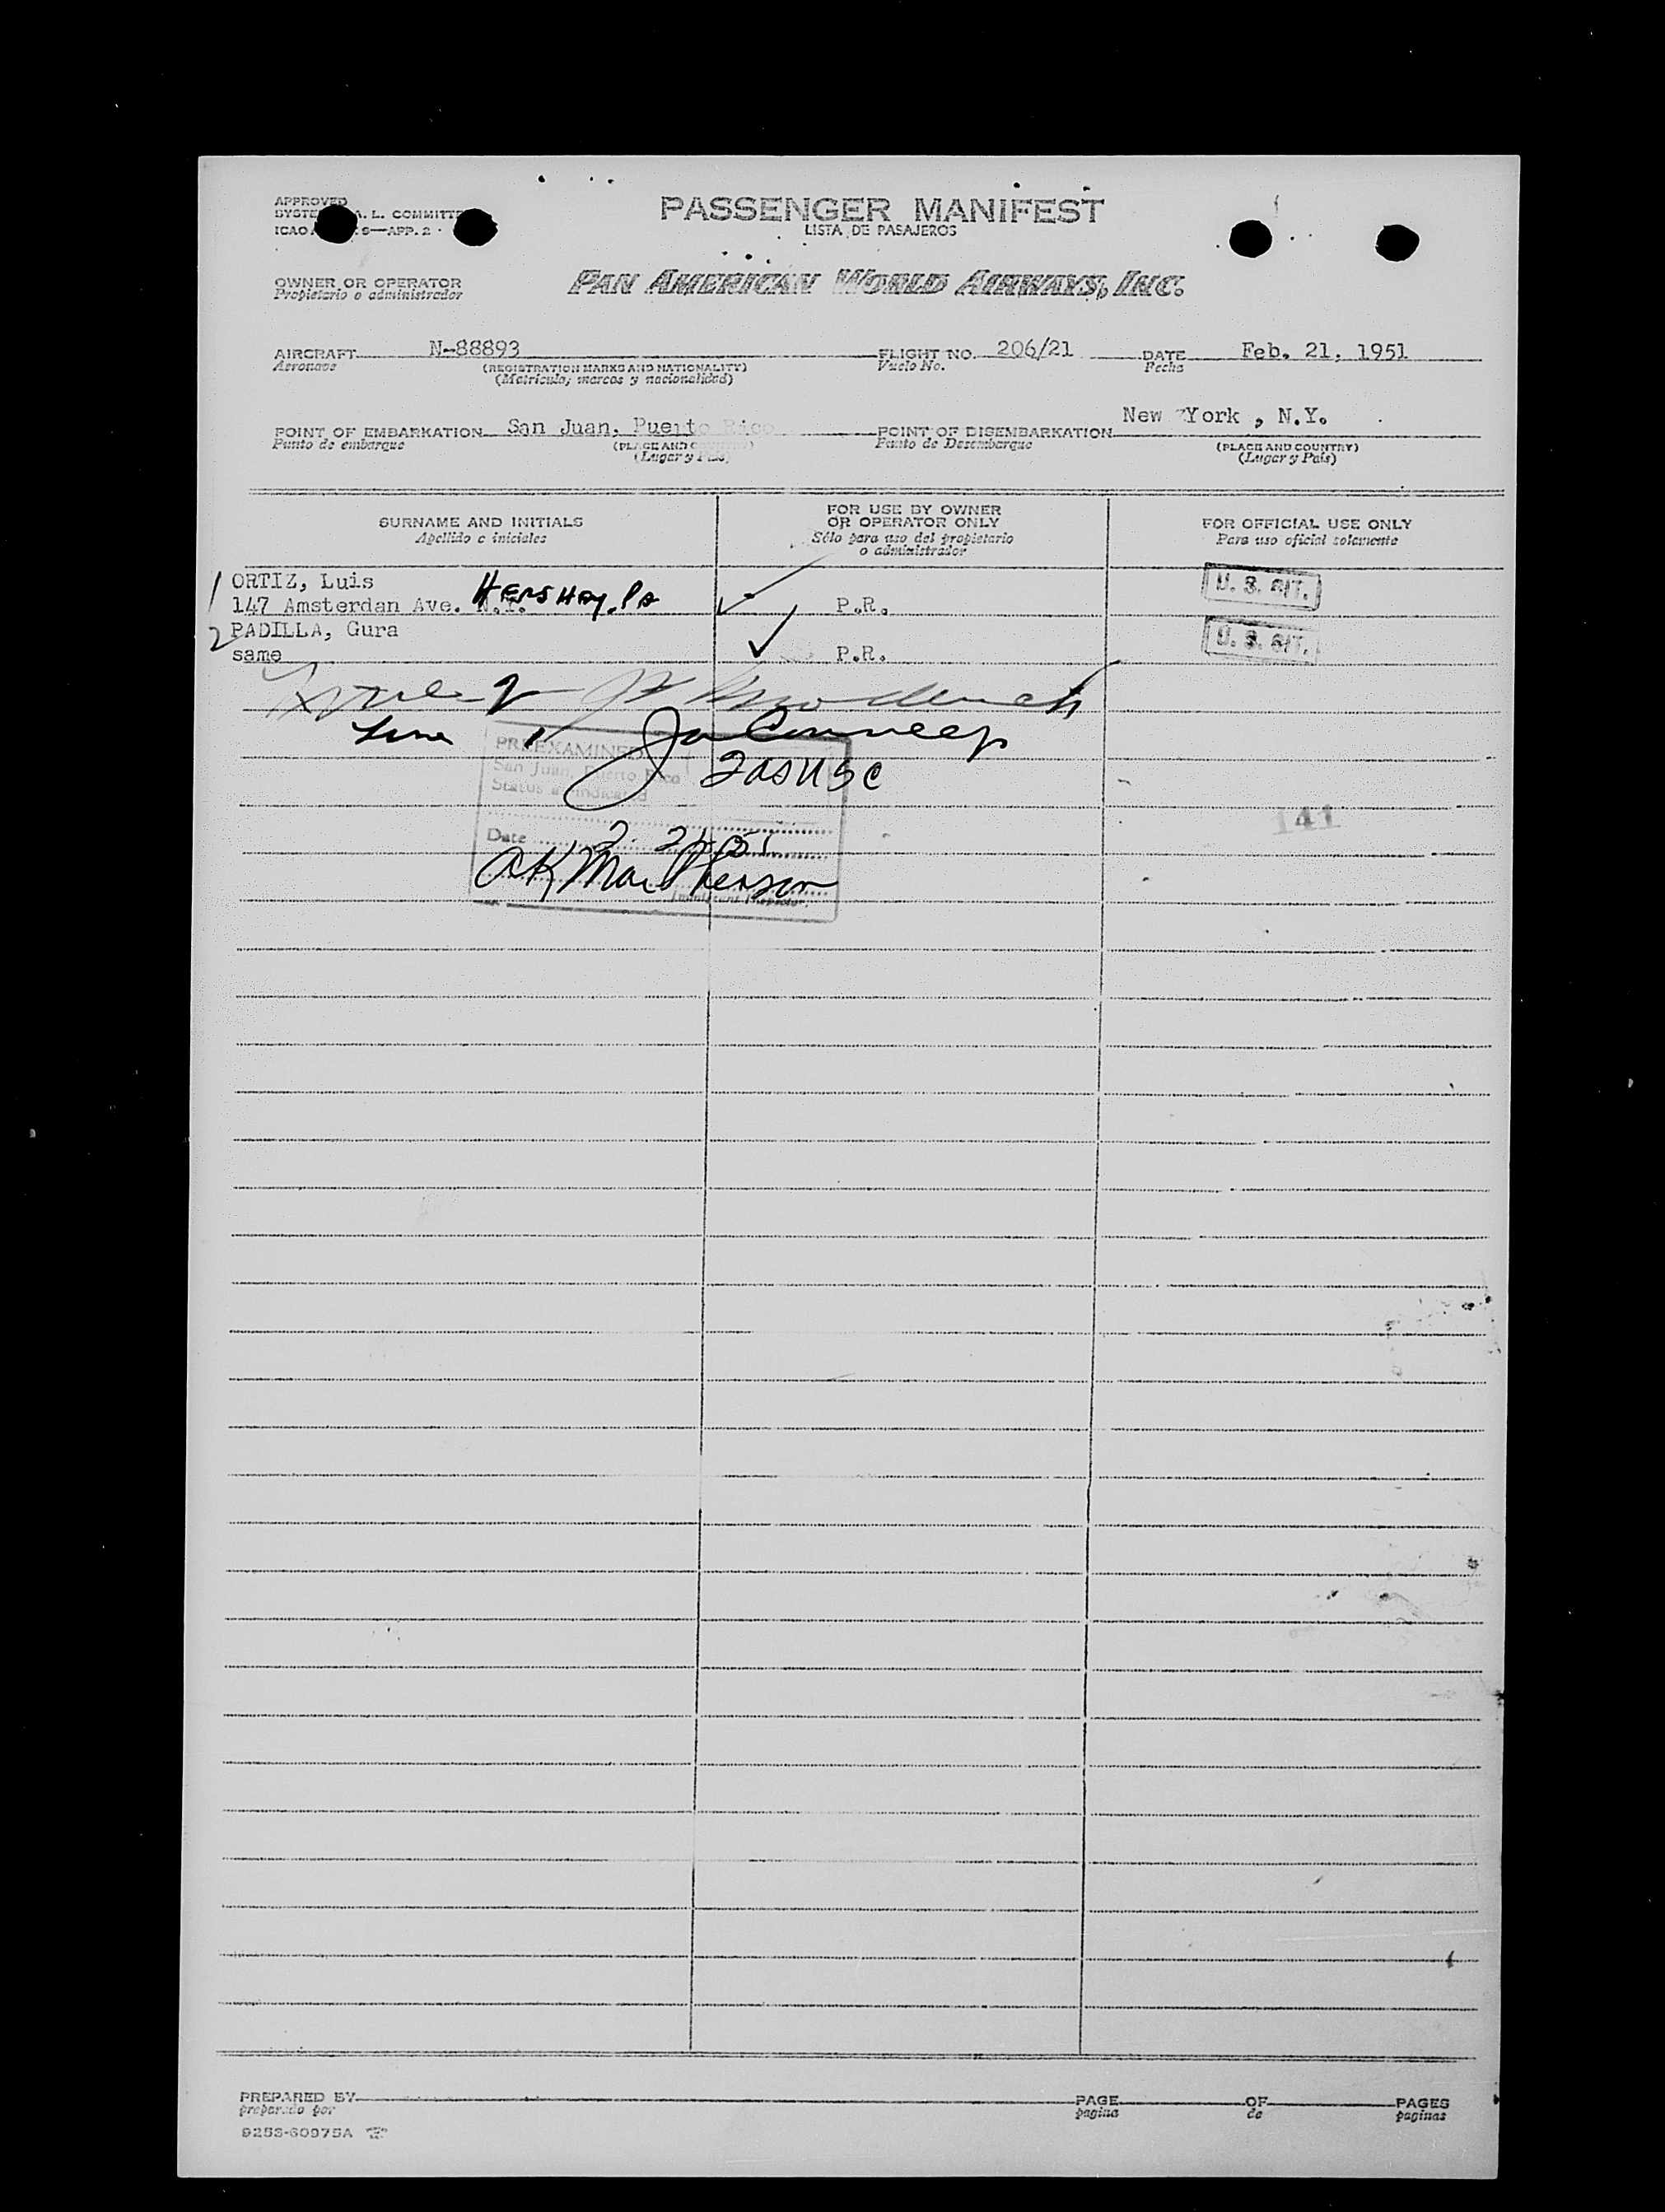 APPROVED
L. COMMITTE
ICAO 9—APP. 2
PASSENGER MANIFEST
LISTA DE PASAJEROS
OWNER OR OPERATOR
Propietario o administrador
PAN AMERICAN WORLD AIRWAYS, INC.
AIRCRAFT N-88893 FLIGHT NO. 206/21 DATE Feb. 21, 1951
Aeronave (REGISTRATION MARKS AND NATIONALITY) Vuelo No. Fecha
(Matricula, marcas y nacionalidad)
POINT OF EMBARKATION San Juan, Puerto Rico POINT OF DISEMBARKATION New York , N.Y.
Punto de embarque (PLACE AND Punto de Desembarque (PLACE AND COUNTRY)
(Lugar y (Lugar y País)
SURNAME AND INITIALS
Apellido e iniciales
FOR USE BY OWNER
OR OPERATOR ONLY
Sólo para uso del propietario
o administrador
FOR OFFICIAL USE ONLY
Para uso oficial solamente
1 ORTIZ, Luis U. S. CIT.
147 Amsterdan Ave. N.Y. HERSHEY, PA P.R.
2 PADILLA, Gura U. S. CIT.
same P.R.
2
PRE-EXAMINED
San Juan, Puerto Rico
Status as indicated
2 USC
141
Date 2 21 51
AK MacPherson
Immigrant Inspector
PREPARED BY PAGE OF PAGES
preparado por pagina de paginas
9253-60975A